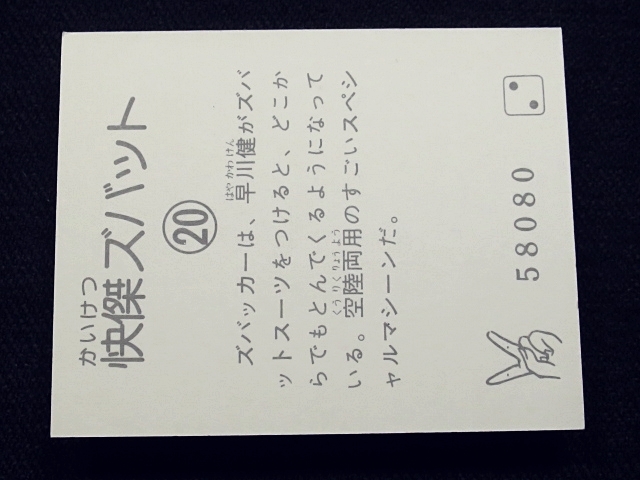 かいけつ
快傑ズバット
⑳
はやかわけん
ズバッカーは、早川健がズバ
ットスーツをつけると、どこか
らでもとんでくるようになって
くうりくりょうよう
いる。空陸両用のすごいスペシ
ャルマシーンだ。
58080